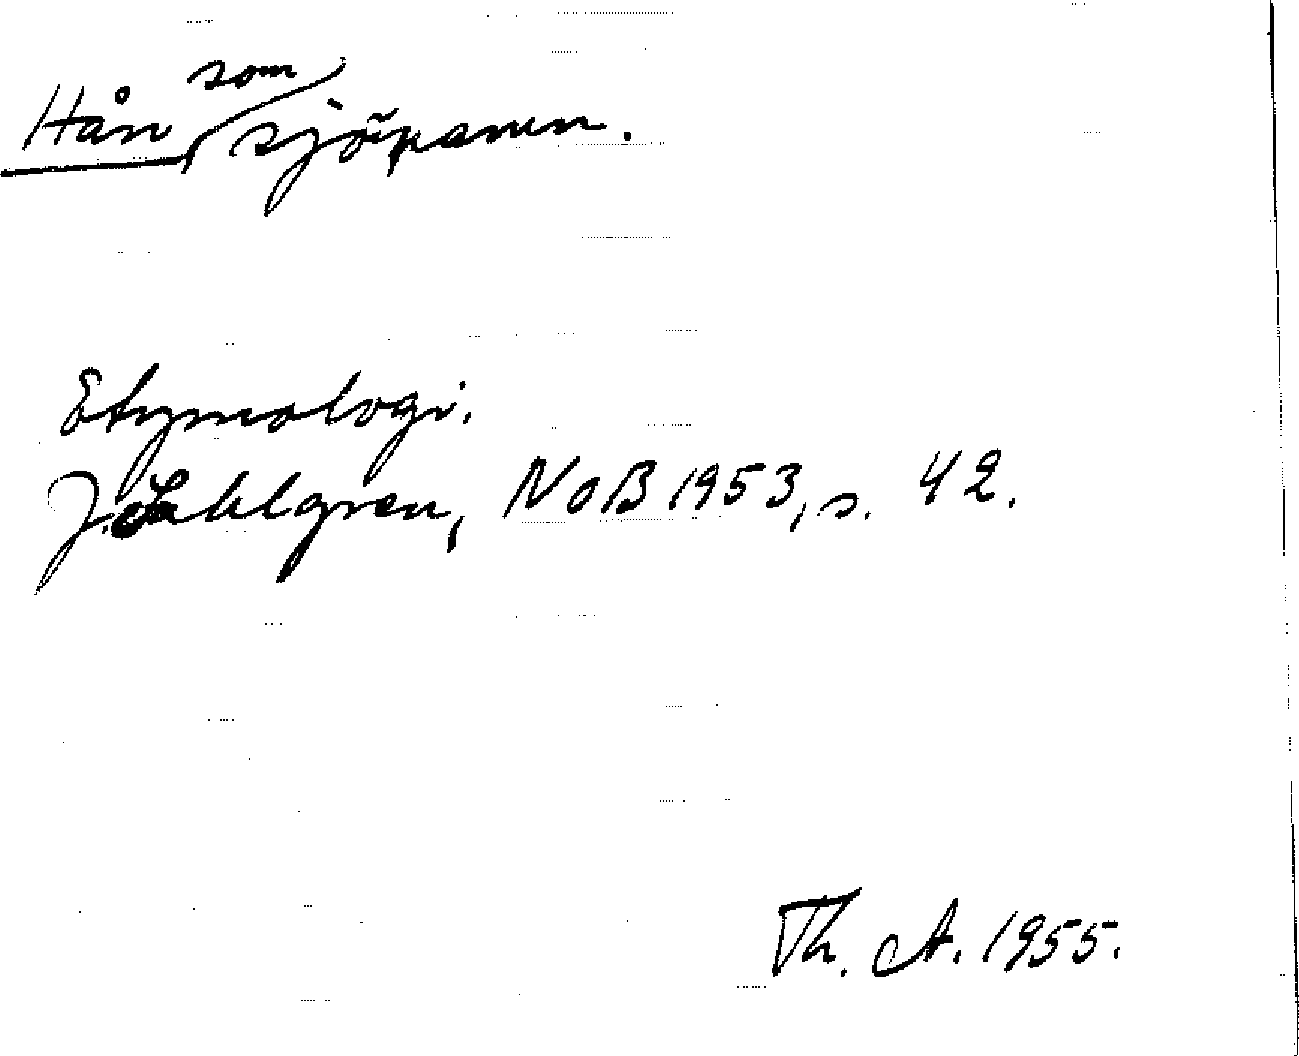 Hån, som sjönamn.
Etymologi.
J. Sahlgren, NoB 1953, s. 42.
Th. A. 1955.